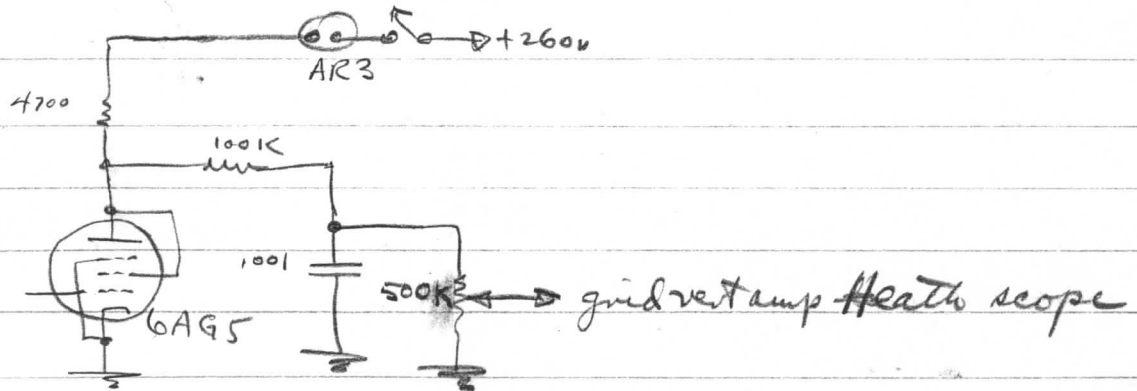 +260v
AR3
4700
100K
.001
500K
grid vert amp Heath scope
6AG5